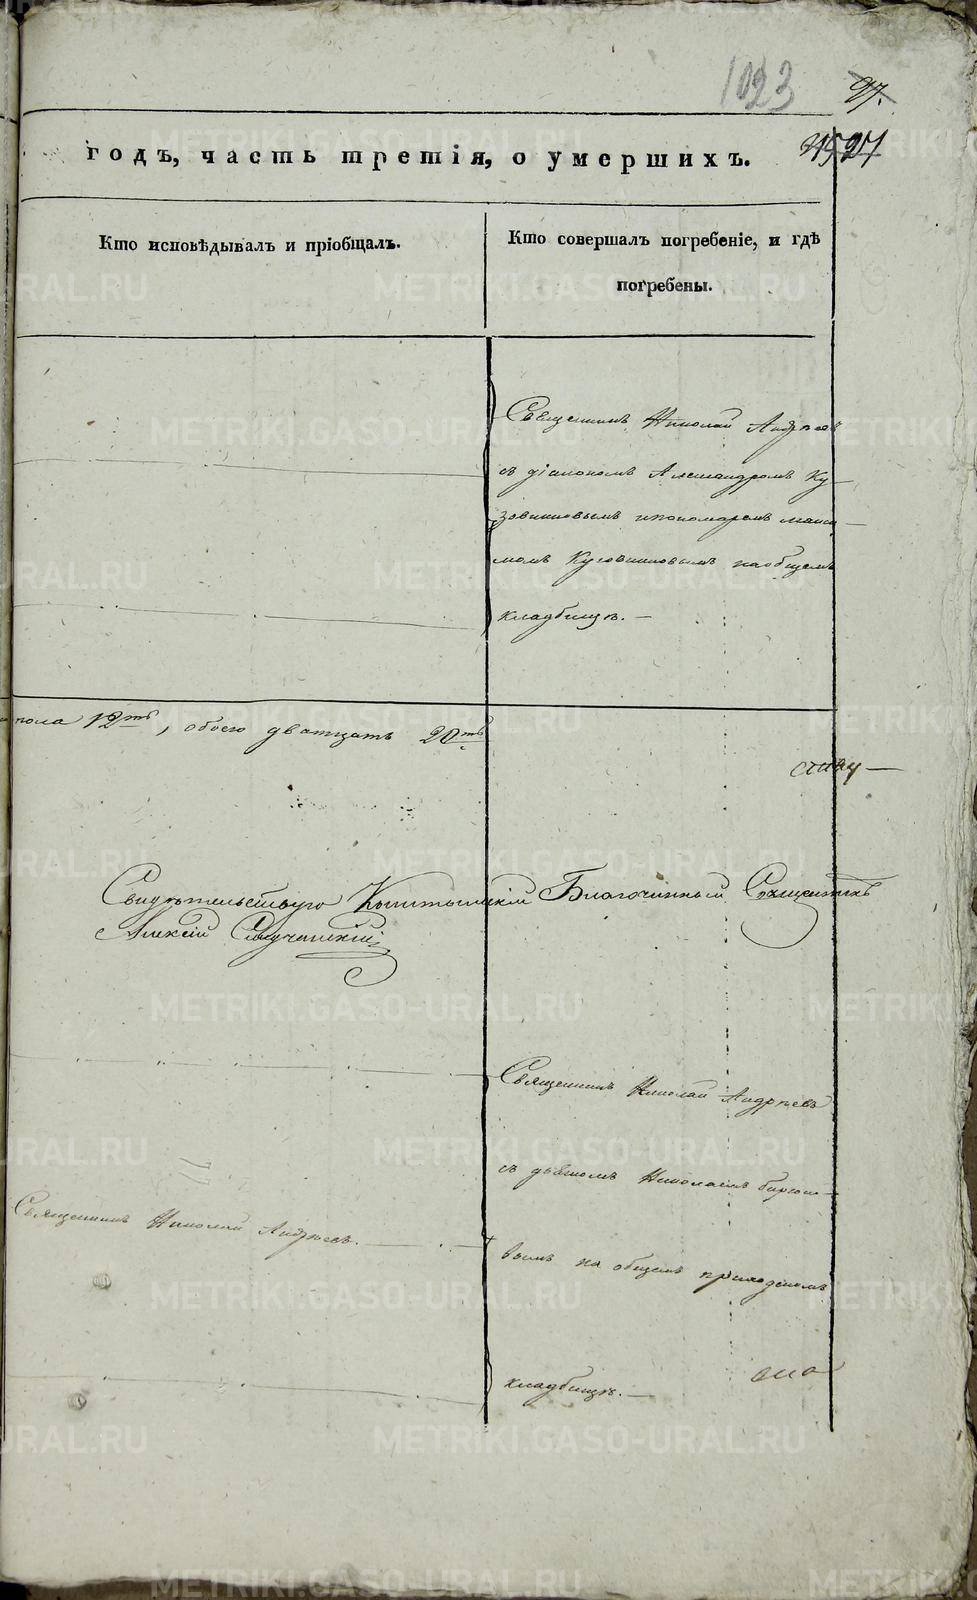 1023
97.
годъ, часть третія, о умершихъ.
Кто исповѣдывалъ и пріобщалъ.
Кто совершалъ погребеніе, и гдѣ
погребены.
Священникъ Николай Андреев
съ діакономъ Александромъ Ку
зовниковымъ ипономаремъ макси
момъ Кузовниковымъ наобщемъ
кладбищѣ.
пола 12ть, обоего дватцать 20ть
Свидѣтельствую Благочинный Священникъ
Алексій
Священникъ Николай Андреевъ
съ Николаемъ
Священникъ Николай Андреевъ.
вымъ на общемъ приходскомъ
кладбищѣ.
METRIKI.GASO-URAL.RU